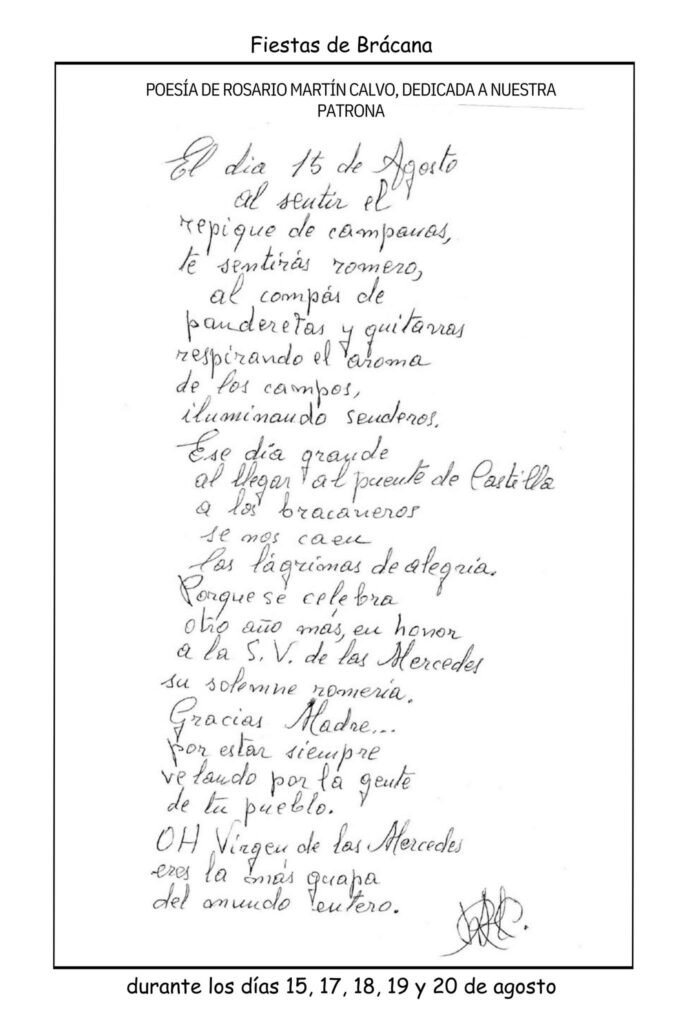 Fiestas de Brácana
POESÍA DE ROSARIO MARTÍN CALVO, DEDICADA A NUESTRA
PATRONA
El dia 15 de Agosto
al sentir el
repique de campanas,
te sentirás romero,
al compás de
panderetas y guitarras
respirando el aroma
de los campos,
iluminando senderos.
Ese día grande
al llegar al puente de Castilla
a los bracaneros
se nos caen
las lágrimas de alegría.
Porque se celebra
otro año más, en honor
a la S. V. de las Mercedes
su solemne romería.
Gracias Madre...
por estar siempre
velando por la gente
de tu pueblo.
OH Virgen de las Mercedes
eres la más guapa
del mundo entero.
durante los días 15, 17, 18, 19 y 20 de agosto